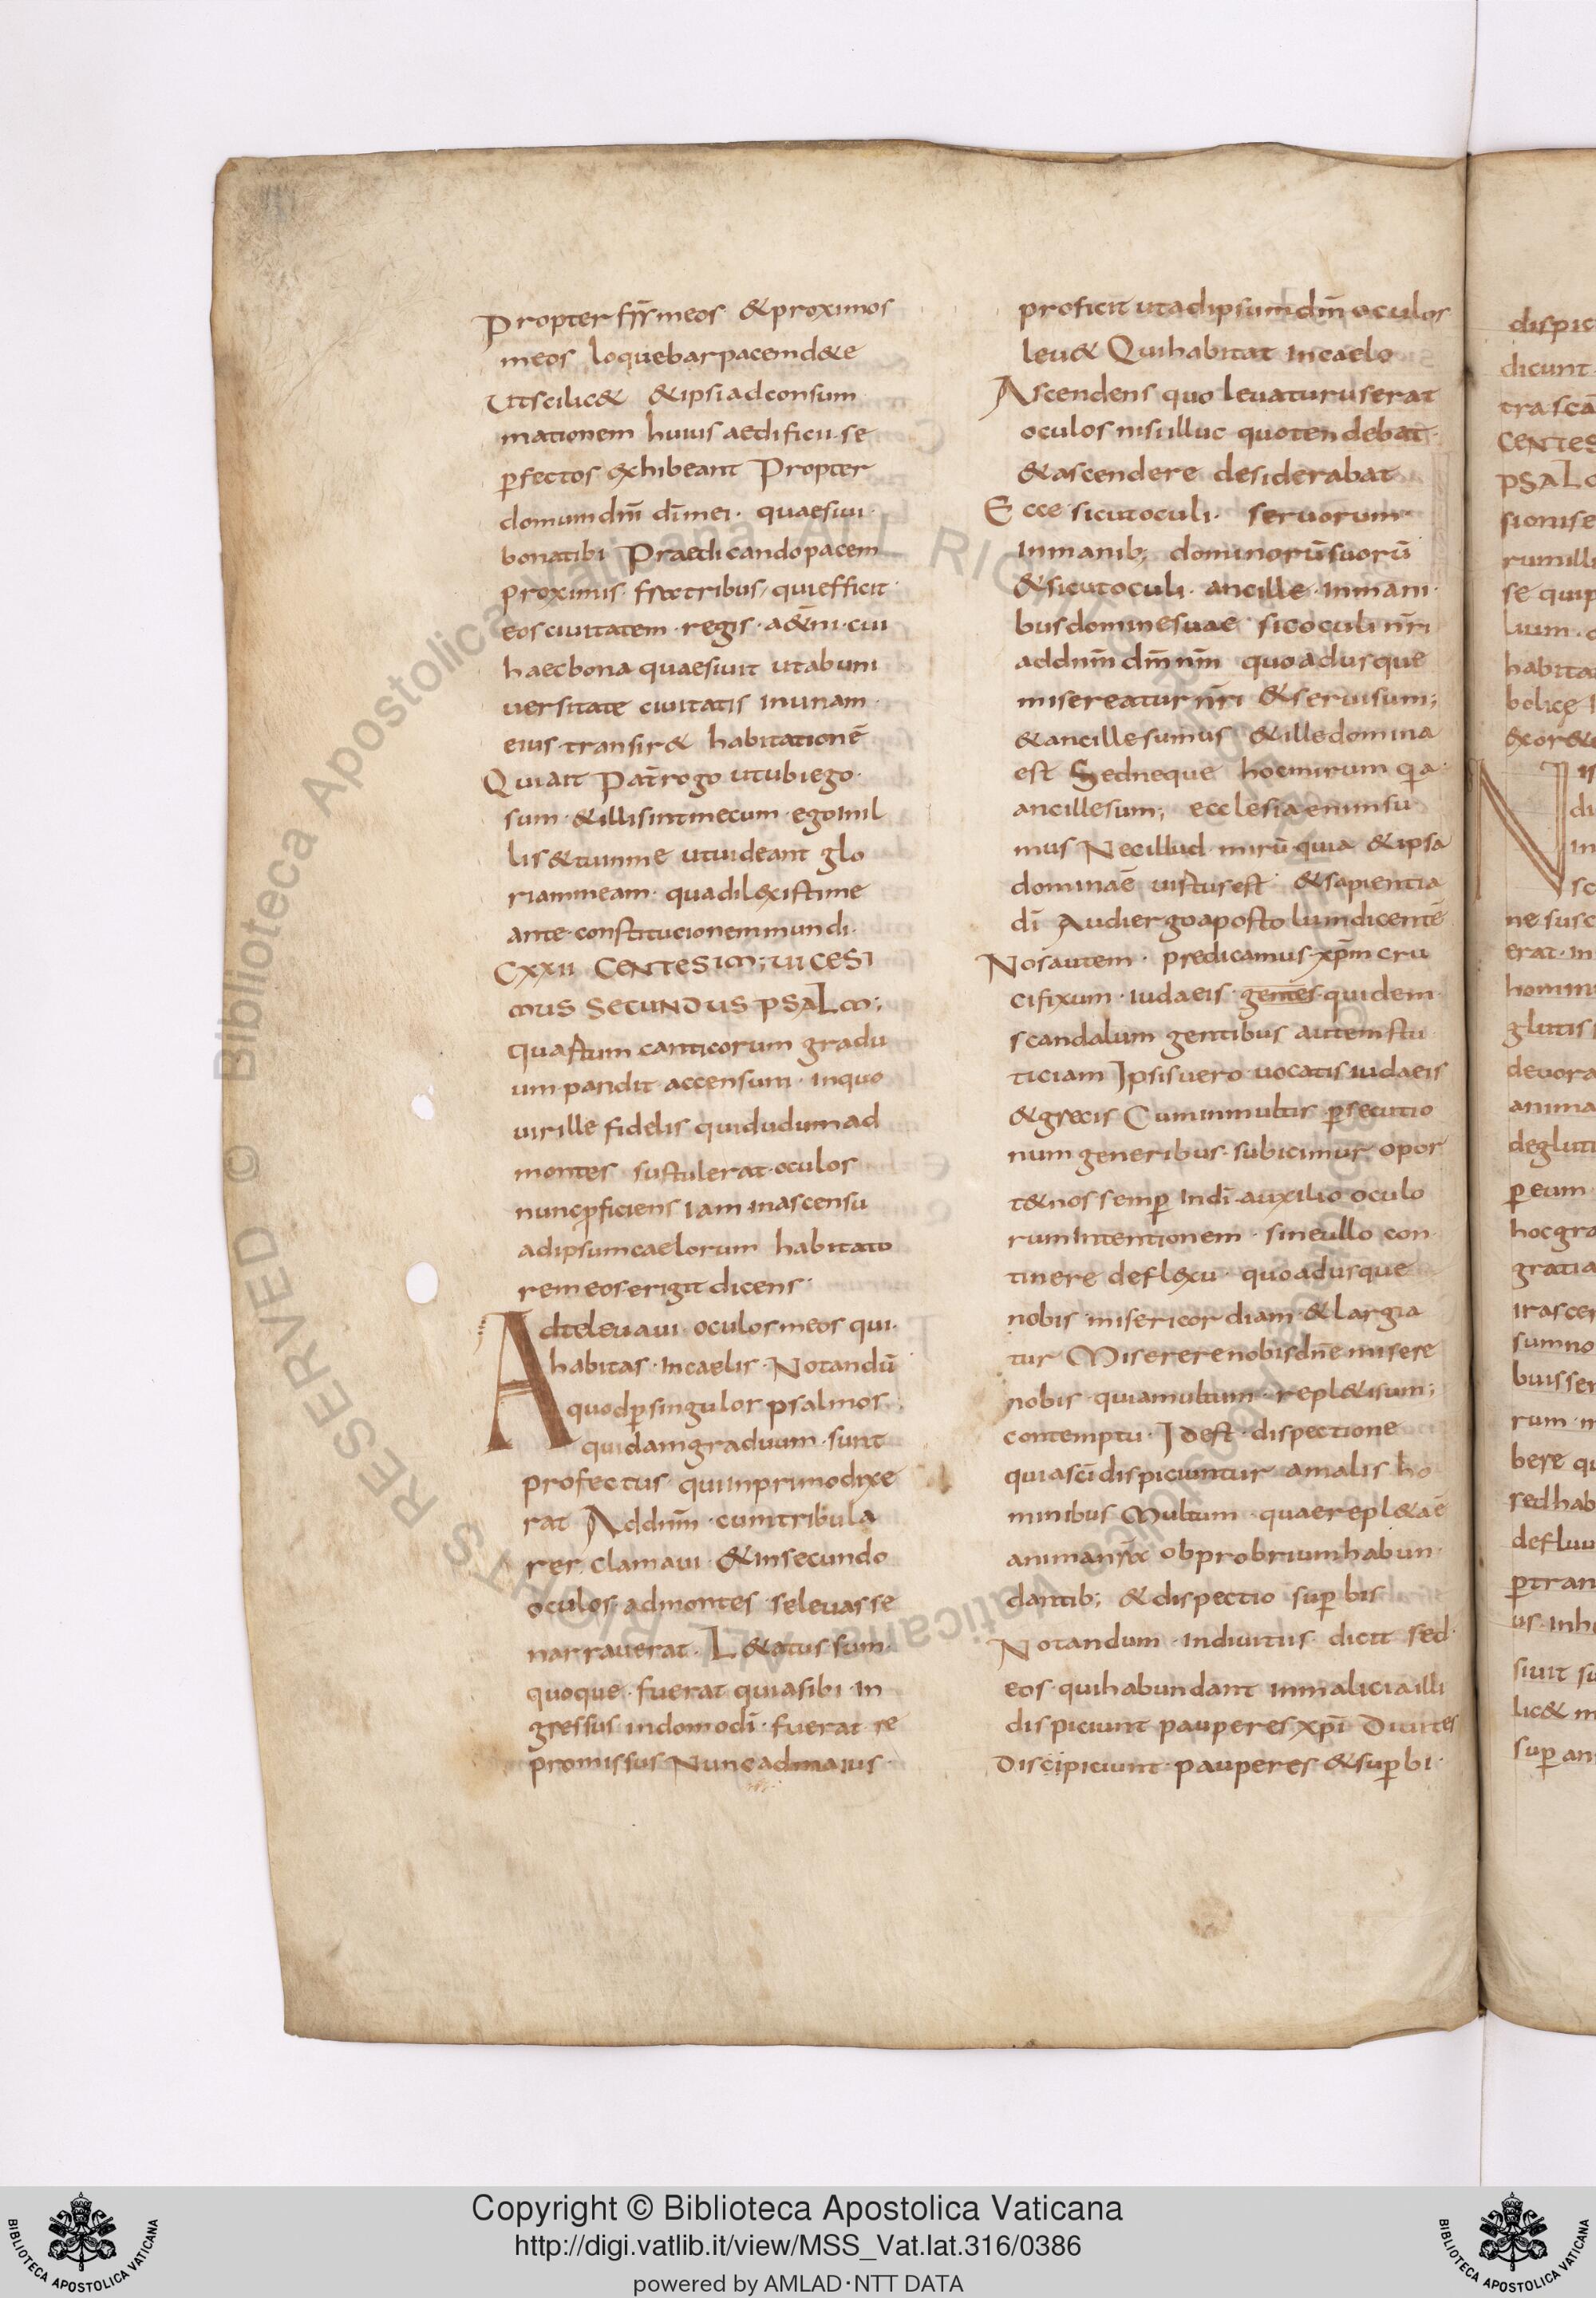 Propter frs̄ meos & proximos
meos loquebar pacem d& e
Utscilic& & ipsi ad consum
mationem huius aedificii · se
ꝑfectos exhibeant Propter
domum dn̄i dī mei · quaesiui ·
bona tibi Praedicando pacem
proximis · fratribus, qui efficit ·
eos ciuitatem · regis · a&̄ni · cui
haec bona quaesiuit ut ab uni
uersitate ciuitatis in unam ·
eius · transir& habitationē
Qui ait Pat̄ rogo ut ubi ego ·
sum · & illi sint mecum · ego in il
lis & tu in me ut uideant glo
riam meam · qua dilexisti me
ante · constitucionem mundi ·
CXXII CENTESIM; UICESI
MUS SECUNDUS PSALM;
quartum canticorum gradu
um pandit accensum · in quo
uir ille fidelis qui dudum ad
montes sustulerat · oculos
nunc ꝓficiens iam · in ascensu
ad ipsum caelorum habitato
rem eos · erigit dicens ·
Ad te leuaui · oculos meos qui ·
habitas · in caelis · Notandū
quod ꝑ singulos psalmos ·
quidam graduum · sunt
profectus qui in primo dixe
rat Ad dnm̄ · cum tribula
rer clamaui · & in secundo
oculos · ad montes · se leuasse
narrauerat · L&atus sum ·
quoque · fuerat quia sibi · in
gressus in domo dī · fuerat re
promissus Nunc ad maius ·
proficit ut ad ipsum dnm̄ oculos
leu& Qui habitat in caelo
Ascendens quo leuaturus erat
oculos nisi illuc quo tendebat ·
& ascendere desiderabat
Ecce sicut oculi · seruorum ·
In manib; dominorū suorū
& sicut oculi · ancille · in mani ·
bus domine suae · sic oculi nr̄i
ad dnm̄ dm̄ nm̄ quoadusque
misereatur nr̄i & serui sum;
& ancille sumus & ille domina
est Sed neque hoc mirum qia ·
ancille sum; ecclesia enim su
mus Nec illud mirū quia & ipsa
dominaē uirtus est · & sapientia
dī Audi ergo apostolum dicentē
Nos autem · predicamus xpm̄ cru
cifixum · iudaeis · gentes · quidem ·
scandalum gentibus autem stu
ticiam Ipsis uero · uocatis iudaeis
& grecis Cum in multis ꝑsecutio
num generibus · subicimur · opor
t& nos semꝑ in dī · auxilio oculo
rum intentionem · sine ullo con
tinere deflexu · quoadusque
nobis · misericordiam · & largia
tur Miserere nobis dn̄e misere
nobis · quia multum · repl&i sum;
contemptu · Id est · dispectione
quia scī dispiciuntur a malis ho
minibus Multum · quae repl&a ē
anima nr̄a obprobrium habun ·
dantib; & dispectio suꝑbis
Notandum · in diuitiis · dicit sed ·
eos · qui habundant in malicia illi
dispiciunt pauperes xpī Diuites
Discipiciunt · pauperes & suꝑbi ·
Copyright © Biblioteca Apostolica Vaticana
http://digi.vatlib.it/view/MSS_Vat.lat.316/0386
powered by AMLAD·NTT DATA